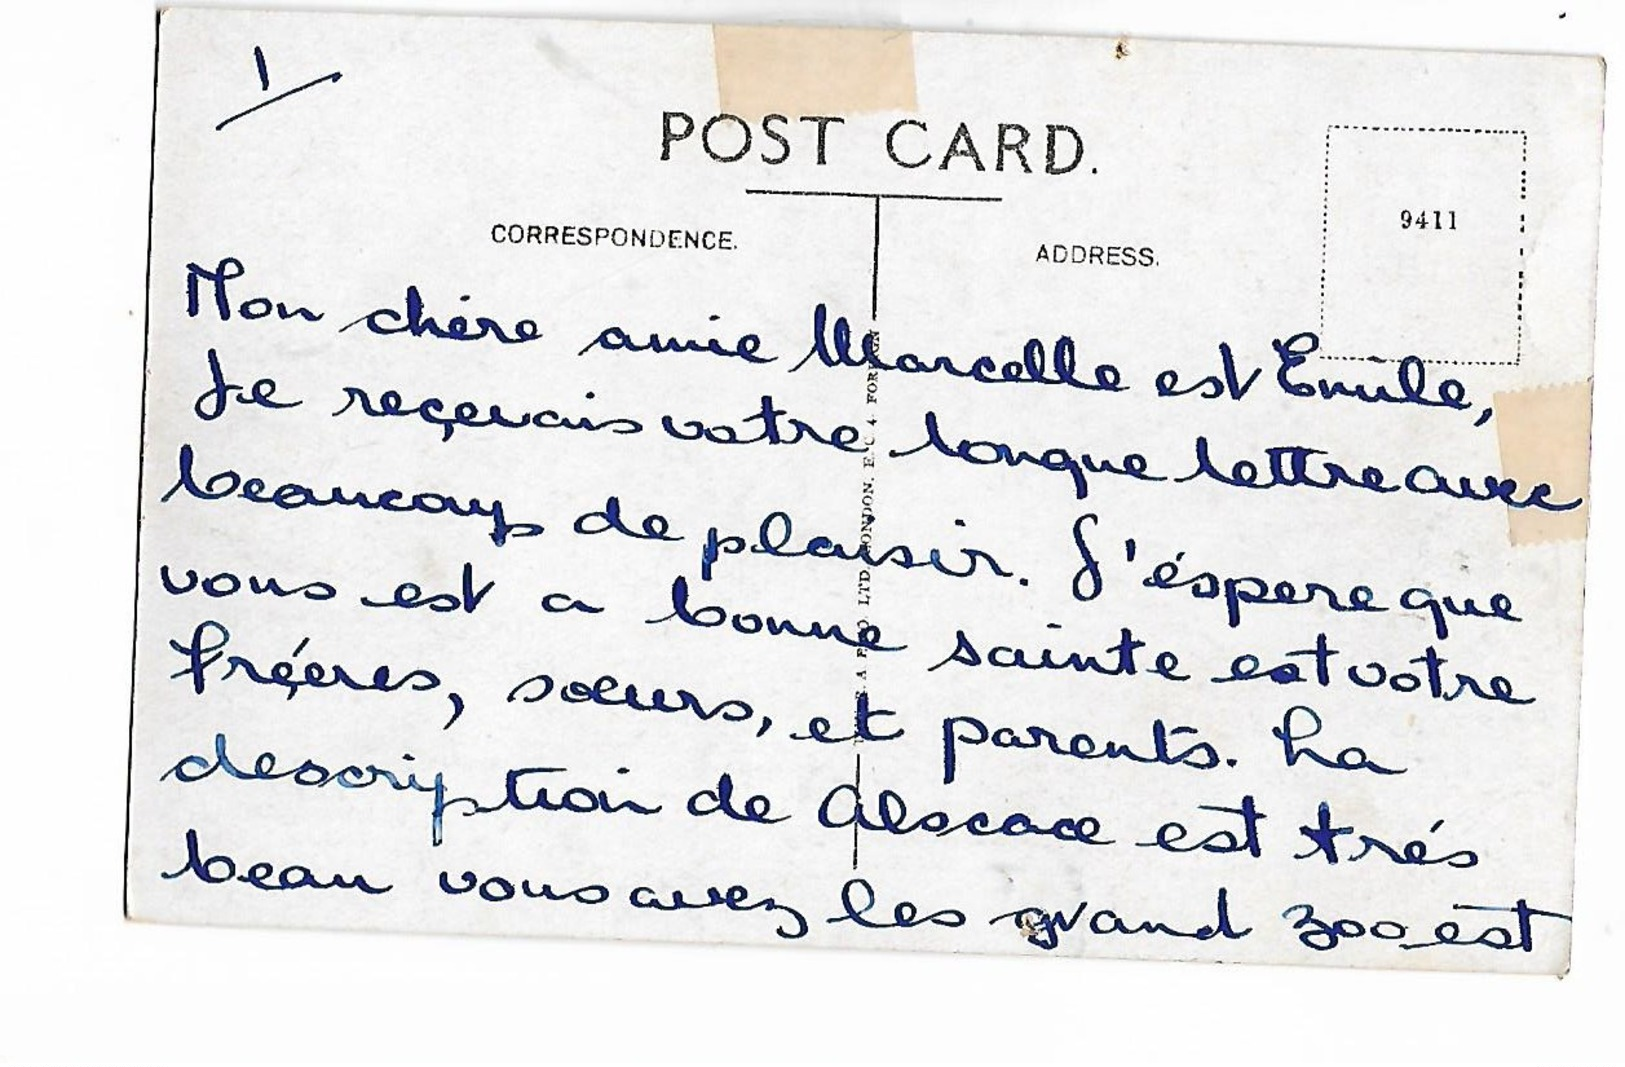 1
POST CARD.
CORRESPONDENCE.
ADDRESS.
9411
Mon chére amie Marcelle est Emile,
Je reçevais votre longue lettre avec
beaucoup de plaisir. J'éspere que
vous est a bonne sainte est votre
fréeres, soeurs, et parents. La
description de Alscace est trés
beau vous avez les grand zoo est
LTD. LONDON. E.C.4. FOREIGN